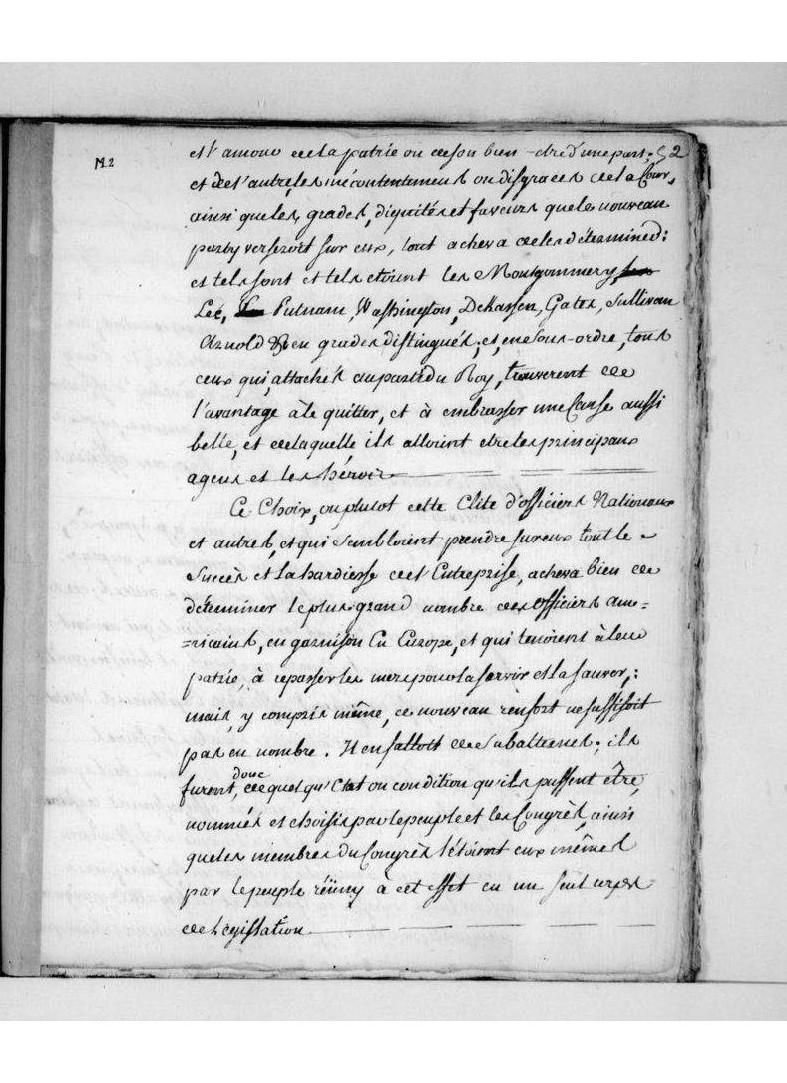 M.2
et l'amour de la patrie ou de son bien-etre d'une part; 52
et de l'autre, les mécontentement ou disgraces de la Cour,
ainsi que les grades, dignités et faveurs que le nouveau
party verseroit sur eux, tout acheva de les détermined:
et tels sont et tels etoient les Montgommery,
Lée, Putnam, Washington, Gates, Sullivan
Arnold &c en grades distingués; et, en sous-ordre, tous
ceux qui, attachés au parti du Roy, trouverent de
l'avantage à le quitter, et à embrasser une Cause aussi
belle, et de laquelle ils alloient etre les principaux
agens et les héroïs
Ce Choix, ou plutot cette Elite d'officiers Nationaux
et autres, et qui sembloient prendre sur eux tout le
Succès et la hardiesse de l'Entreprise, acheva bien de
déterminer le plus grand nombre des officiers ame=
=ricains, en garnison En Europe, et qui tenoient à leur
patrie, à repasser les mers pour la servir et la sauver;:
mais, y compris même, ce nouveau renfort ne suffisoit
pas en nombre. Il en falloit de Subalternes; ils
donc
furent, de quel qu'Etat ou condition qu'ils pussent être,
nommés et choisis par le peuple et les Congrès, ainsi
que les membres du Congrès l'étoient eux mêmes
par le peuple réüny à cet effet en un seul corps
de Légissation